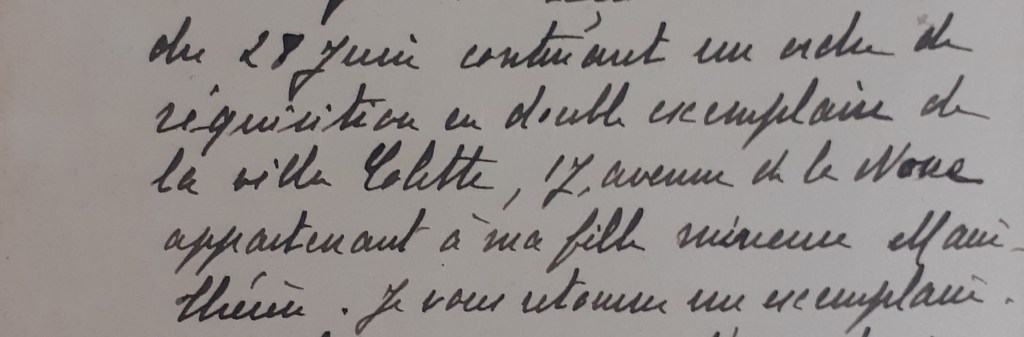 du 28 Juin contenant un ordre de
réquisition en double exemplaire de
la villa Colette, 17, avenue de la Noue
appartenant à ma fille mineure Marie-
Thérèse. Je vous retourne un exemplaire.